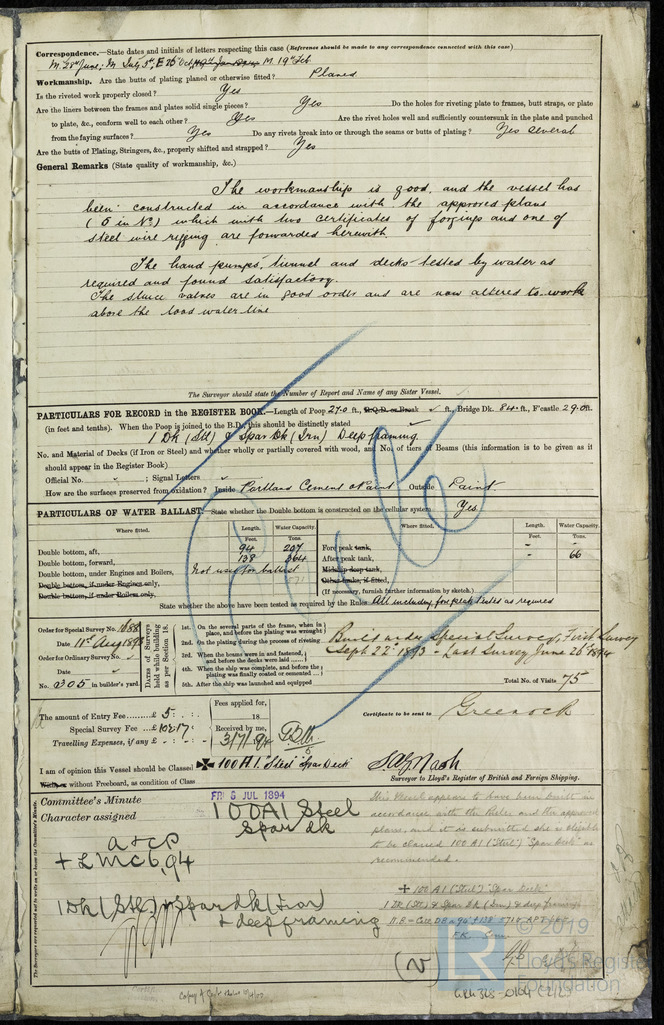 Correspondence.—State dates and initials of letters respecting this case (Reference should be made to any correspondence connected with this case).
M. 28th June; M July 3rd, E 25 Oct, M. 19th Feb
Workmanship. Are the butts of plating planed or otherwise fitted? Planed
Is the riveted work properly closed? Yes
Are the liners between the frames and plates solid single pieces? Yes Do the holes for riveting plate to frames, butt straps, or plate
to plate, &c., conform well to each other? Yes Are the rivet holes well and sufficiently countersunk in the plate and punched
from the faying surfaces? Yes Do any rivets break into or through the seams or butts of plating? Yes several
Are the butts of Plating, Stringers, &c., properly shifted and strapped? Yes
General Remarks (State quality of workmanship, &c.)
The workmanship is good, and the vessel has
been constructed in accordance with the approved plans
(5 in No) which with two certificates of forgings and one of
steel wire rigging are forwarded herewith
The hand pumps, tunnel and decks tested by water as
required and found satisfactory.
The sluice valves are in good order and are now altered to work
above the load water line
The Surveyor should state the Number of Report and Name of any Sister Vessel.
PARTICULARS FOR RECORD in the REGISTER BOOK.—Length of Poop 27.0 ft., R.Q.D. or Break ft., Bridge Dk. 84 ft., F'castle 29.0 ft.
(in feet and tenths). When the Poop is joined to the B.D., this should be distinctly stated
1 Dk (Stl) & Spar Dk (Irn) Deep framing
No. and Material of Decks (if Iron or Steel) and whether wholly or partially covered with wood, and No. of tiers of Beams (this information is to be given as it
should appear in the Register Book)
Official No. ; Signal Letters
How are the surfaces preserved from oxidation? Inside Portland Cement & Paint Outside Paint.
PARTICULARS OF WATER BALLAST.—State whether the Double bottom is constructed on the cellular system Yes
Where fitted. Length. Water Capacity. Where fitted. Length. Water Capacity.
Feet. Tons. Feet. Tons.
Double bottom, aft, 94 207 Fore peak tank, -
Double bottom, forward, 138 364 After peak tank, - 66
Double bottom, under Engines and Boilers, Not used for ballast Midship deep tank,
Double bottom, if under Engines only, 571 Other tanks, if fitted,
Double bottom, if under Boilers only, (If necessary, furnish further information by sketch.)
State whether the above have been tested as required by the Rules All including fore peak tested as required
Order for Special Survey No. 1688
Date 11th Aug 1893
Order for Ordinary Survey No.
Date
No. 305 in builder's yard.
DATES of Surveys held while building as per Section 18.
1st. On the several parts of the frame, when in place, and before the plating was wrought
2nd. On the plating during the process of riveting
3rd. When the beams were in and fastened, and before the decks were laid
4th. When the ship was complete, and before the plating was finally coated or cemented
5th. After the ship was launched and equipped
Built under Special Survey, First Survey
Sept 22nd 1893 - Last Survey June 26 1894
Total No. of Visits 75
The amount of Entry Fee £ 5 : :
Special Survey Fee £ 102 : 17 :
Travelling Expenses, if any £ - : - : -
Fees applied for,
18
Received by me,
3/7/94
Certificate to be sent to Greenock
I am of opinion this Vessel should be Classed ✠ 100 A1. "Steel" Spar Deck
With or without Freeboard, as condition of Class
Nash
Surveyor to Lloyd's Register of British and Foreign Shipping.
The Surveyors are requested not to write on or below the Committee's Minute.
Committee's Minute FRI 6 JUL 1894
Character assigned 100A1 Steel
Spar dk
a & c p
+ LMC 6,94
1Dk (Stl) & Spar dk (Iron)
& deep framing
This Vessel appears to have been built in
accordance with the Rules and the approved
plans, and it is submitted she is eligible
to be classed 100 A1 (Steel) "Spar Deck" as
recommended.
+ 100 A1 (Steel) "Spar Deck"
1 Dk (Stl) & Spar Dk (Iron) & deep framing
(V)
LR
© 2019
Lloyd's Register
Foundation